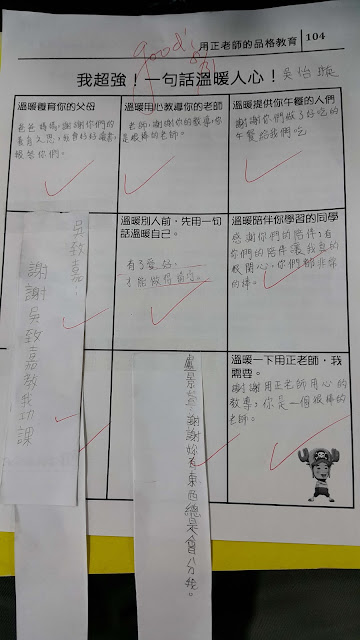 good!
用正老師的品格教育 104
我超強！一句話溫暖人心！
吳怡璇
溫暖養育你的父母
爸爸媽媽，謝謝你們的
養育之恩，我會好好讀書，
報答你們。
溫暖用心教導你的老師
老師，謝謝你的教導，你
是很棒的老師。
溫暖提供你午餐的人們
謝謝你們做了好吃的
午餐給我們吃
吳致嘉：
謝謝吳致嘉教我功課
溫暖別人前，先用一句
話溫暖自己。
有了愛好，
才能做得
溫暖陪伴你學習的同學
感謝你們的陪伴，有
你們的陪伴讓我真的
很開心，你們都非常
的棒。
盧景馨：謝謝妳有東西總是會分我。
溫暖一下用正老師，我
需要。
謝謝用正老師用心的
教導，你是一個很棒的
老師。